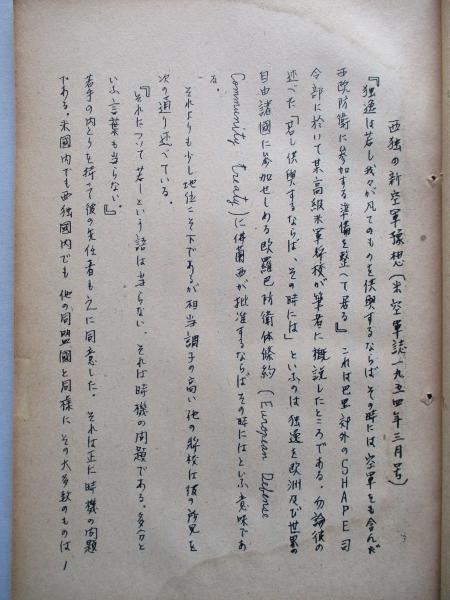 西独の新空軍予想(米空軍誌一九五四年三月号)
『独逸は若し我々が凡てのものを供与するならば、その時には、空軍をも含んだ
西欧防衛に参加する準備を整へて居る』 これは巴里郊外のSHAPE司
令部に於いて某高級米軍将校が筆者に概説したところである。勿論彼の
述べた「若し供与するならば、その時には」といふのは独逸を欧洲及び世界の
自由諸國に参加せしめる欧羅巴防衛体條約(European Defense
Community Treaty)に佛蘭西が批准するならば、その時にはといふ意味であ
る。
それよりも少し地位こそ下であるが相当調子の高い他の将校は彼の所見を
次の通り述べている。
『それについて若しという語は当らない、それは時機の問題である。多分と
いふ言葉も当らない。』
若手の肉とりを持って彼の先任者も之に同意した。それは正に時機の問題
である。米國内でも西独國内でも他の同盟國と同様に、その大多数のものは
1